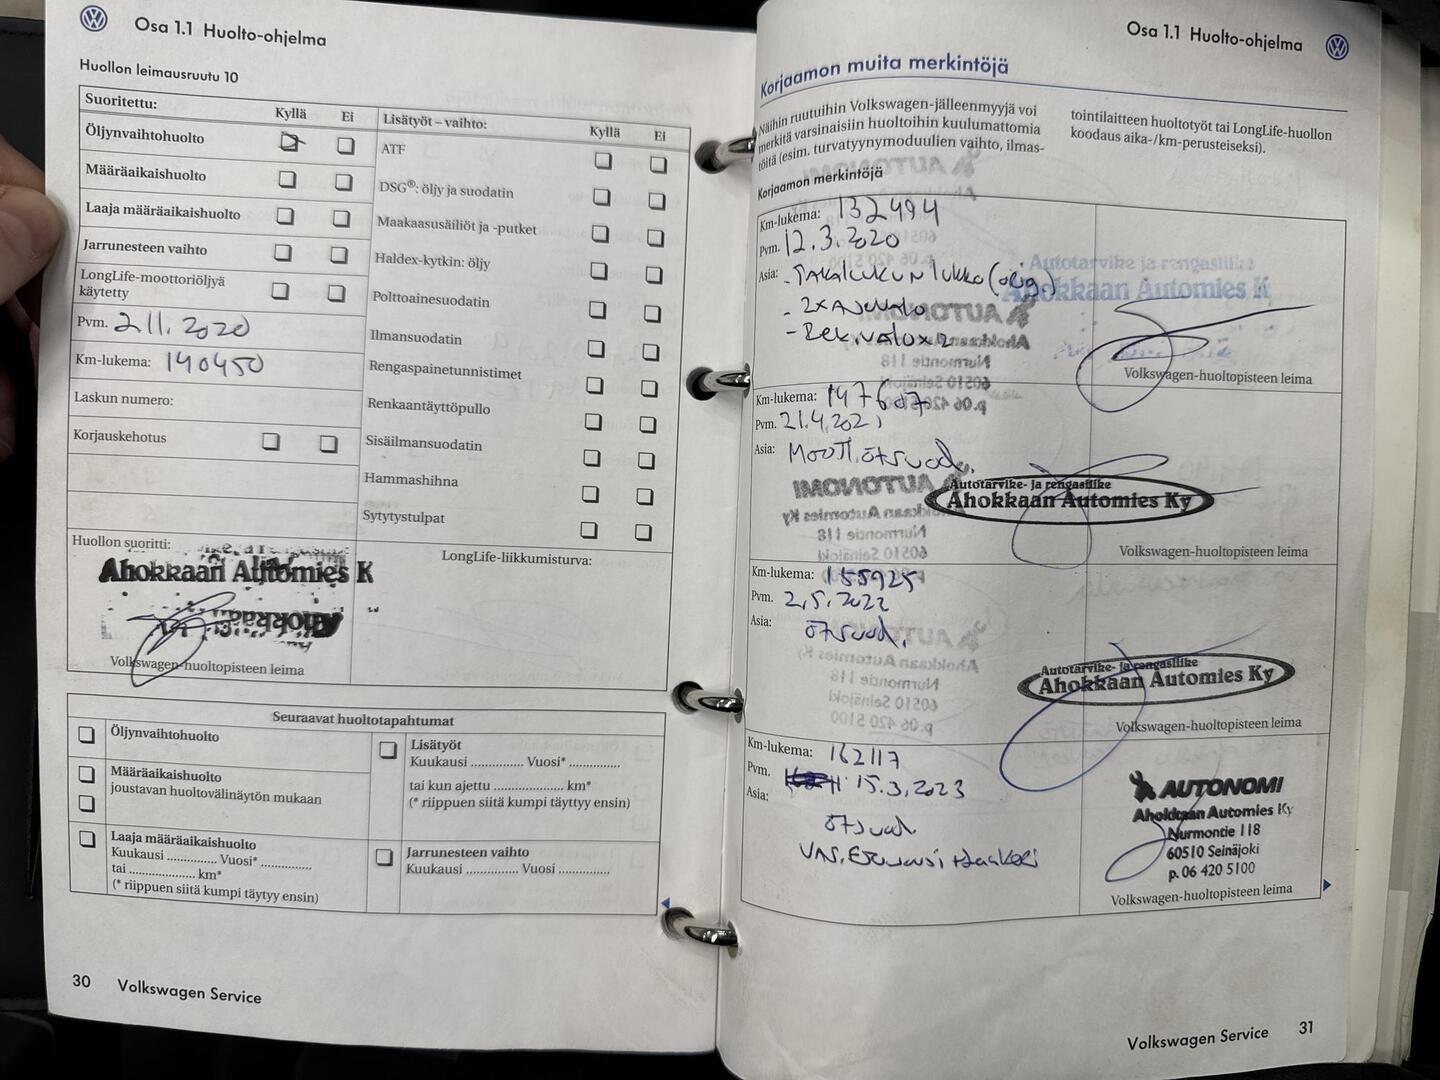 Osa 1.1 Huolto-ohjelma
Huollon leimausruutu 10
Suoritettu:
Kyllä Ei
Öljynvaihtohuolto
Määräaikaishuolto
Laaja määräaikaishuolto
Jarrunesteen vaihto
LongLife-moottoriöljyä
käytetty
Pvm. 2.11.2020
Km-lukema: 140450
Laskun numero:
Korjauskehotus
Huollon suoritti:
Ahokkaan Automies K
Volkswagen-huoltopisteen leima
Lisätyöt – vaihto:
Kyllä Ei
ATF
DSG®: öljy ja suodatin
Maakaasusäiliöt ja -putket
Haldex-kytkin: öljy
Polttoainesuodatin
Ilmansuodatin
Rengaspainetunnistimet
Renkaantäyttöpullo
Sisäilmansuodatin
Hammashihna
Sytytystulpat
LongLife-liikkumisturva:
Seuraavat huoltotapahtumat
Öljynvaihtohuolto
Määräaikaishuolto
joustavan huoltovälinäytön mukaan
Laaja määräaikaishuolto
Kuukausi .............. Vuosi* ..............
tai .................... km*
(* riippuen siitä kumpi täytyy ensin)
Lisätyöt
Kuukausi .............. Vuosi* ..............
tai kun ajettu .................... km*
(* riippuen siitä kumpi täyttyy ensin)
Jarrunesteen vaihto
Kuukausi .............. Vuosi ..............
30 Volkswagen Service
Osa 1.1 Huolto-ohjelma
Korjaamon muita merkintöjä
Näihin ruutuihin Volkswagen-jälleenmyyjä voi
merkitä varsinaisiin huoltoihin kuulumattomia
töitä (esim. turvatyynymoduulien vaihto, ilmas-
tointilaitteen huoltotyöt tai LongLife-huollon
koodaus aika-/km-perusteiseksi).
Korjaamon merkintöjä
Km-lukema: 132494
Pvm. 12.3.2020
Asia: - Takaluukun lukko (orig.)
- 2x Ajovalo
- Rek.valo x 2
Autotarvike ja rengasliike
Ahokkaan Automies K
Volkswagen-huoltopisteen leima
Km-lukema: 147607
Pvm. 21.4.2021
Asia: Moott. öz suod.
Autotarvike- ja rengasliike
Ahokkaan Automies Ky
Volkswagen-huoltopisteen leima
Km-lukema: 155925
Pvm. 2.5.2022
Asia: öz suod.
Autotarvike- ja rengasliike
Ahokkaan Automies Ky
Volkswagen-huoltopisteen leima
Km-lukema: 162117
Pvm. 15.3.2023
Asia:
öz suod.
Vas. Etujousi
AUTONOMI
Ahokkaan Automies Ky
Nurmontie 118
60510 Seinäjoki
p. 06 420 5100
Volkswagen-huoltopisteen leima
Volkswagen Service 31